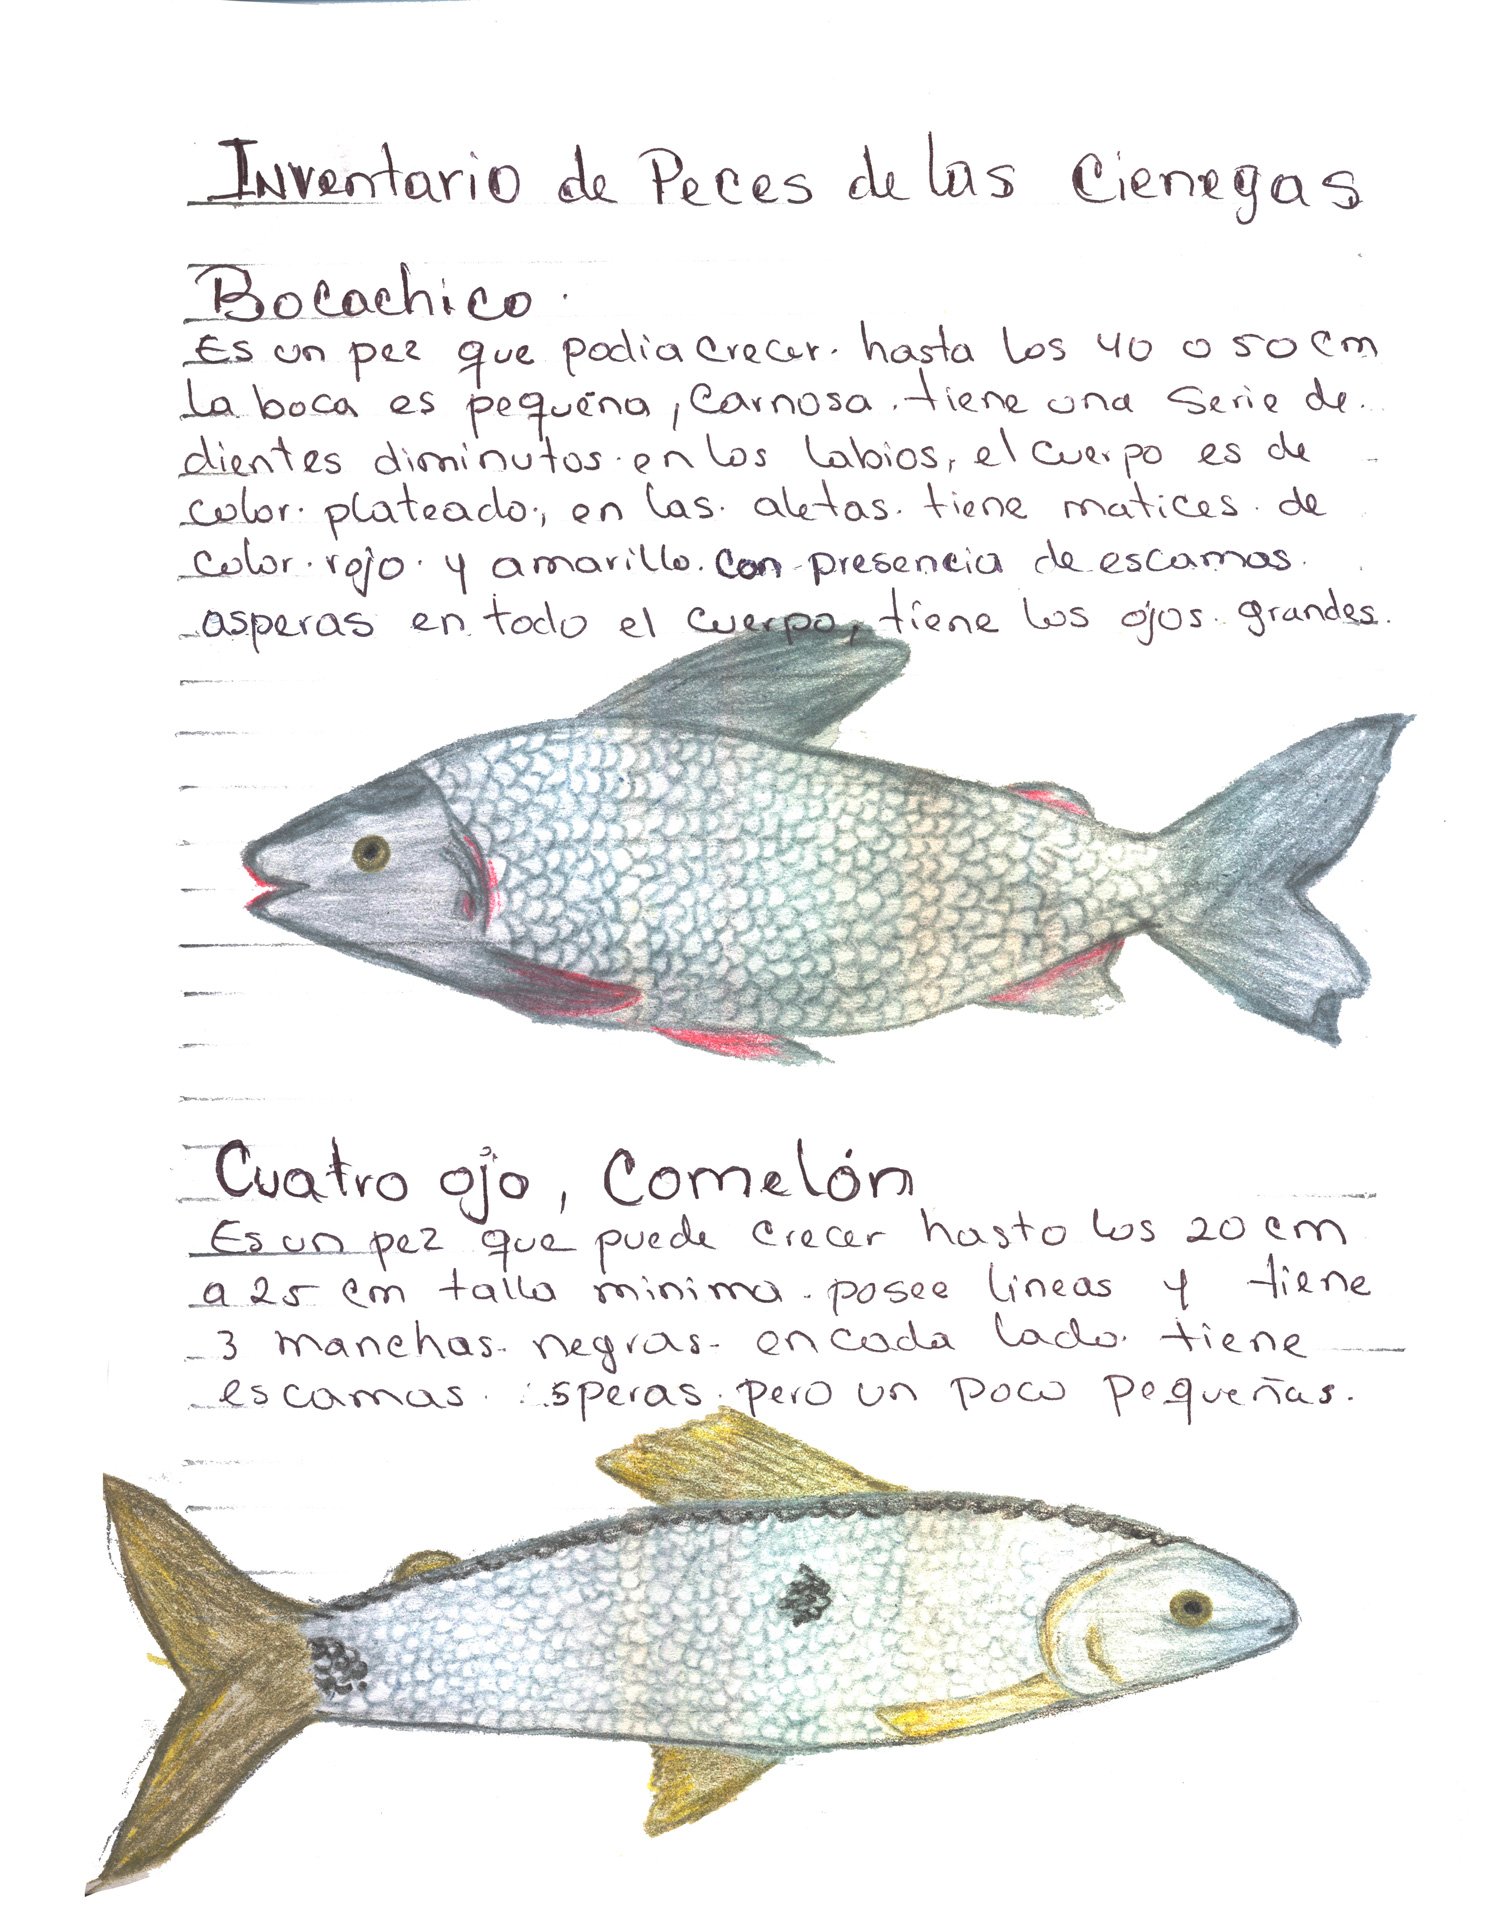 Inventario de Peces de las Cienegas
Bocachico.
Es un pez que podia crecer. hasta los 40 o 50 cm
la boca es pequeña, carnosa. tiene una serie de.
dientes diminutos. en los labios, el cuerpo es de
color. plateado, en las. aletas. tiene matices. de
color. rojo. y amarillo. con presencia de escamas.
asperas en todo el cuerpo, tiene los ojos. grandes.
Cuatro ojo, Comelón
Es un pez que puede crecer hasta los 20 cm
a 25 cm talla minima. posee lineas y tiene
3 manchas. negras. en cada lado. tiene
escamas. speras. pero un poco pequeñas.